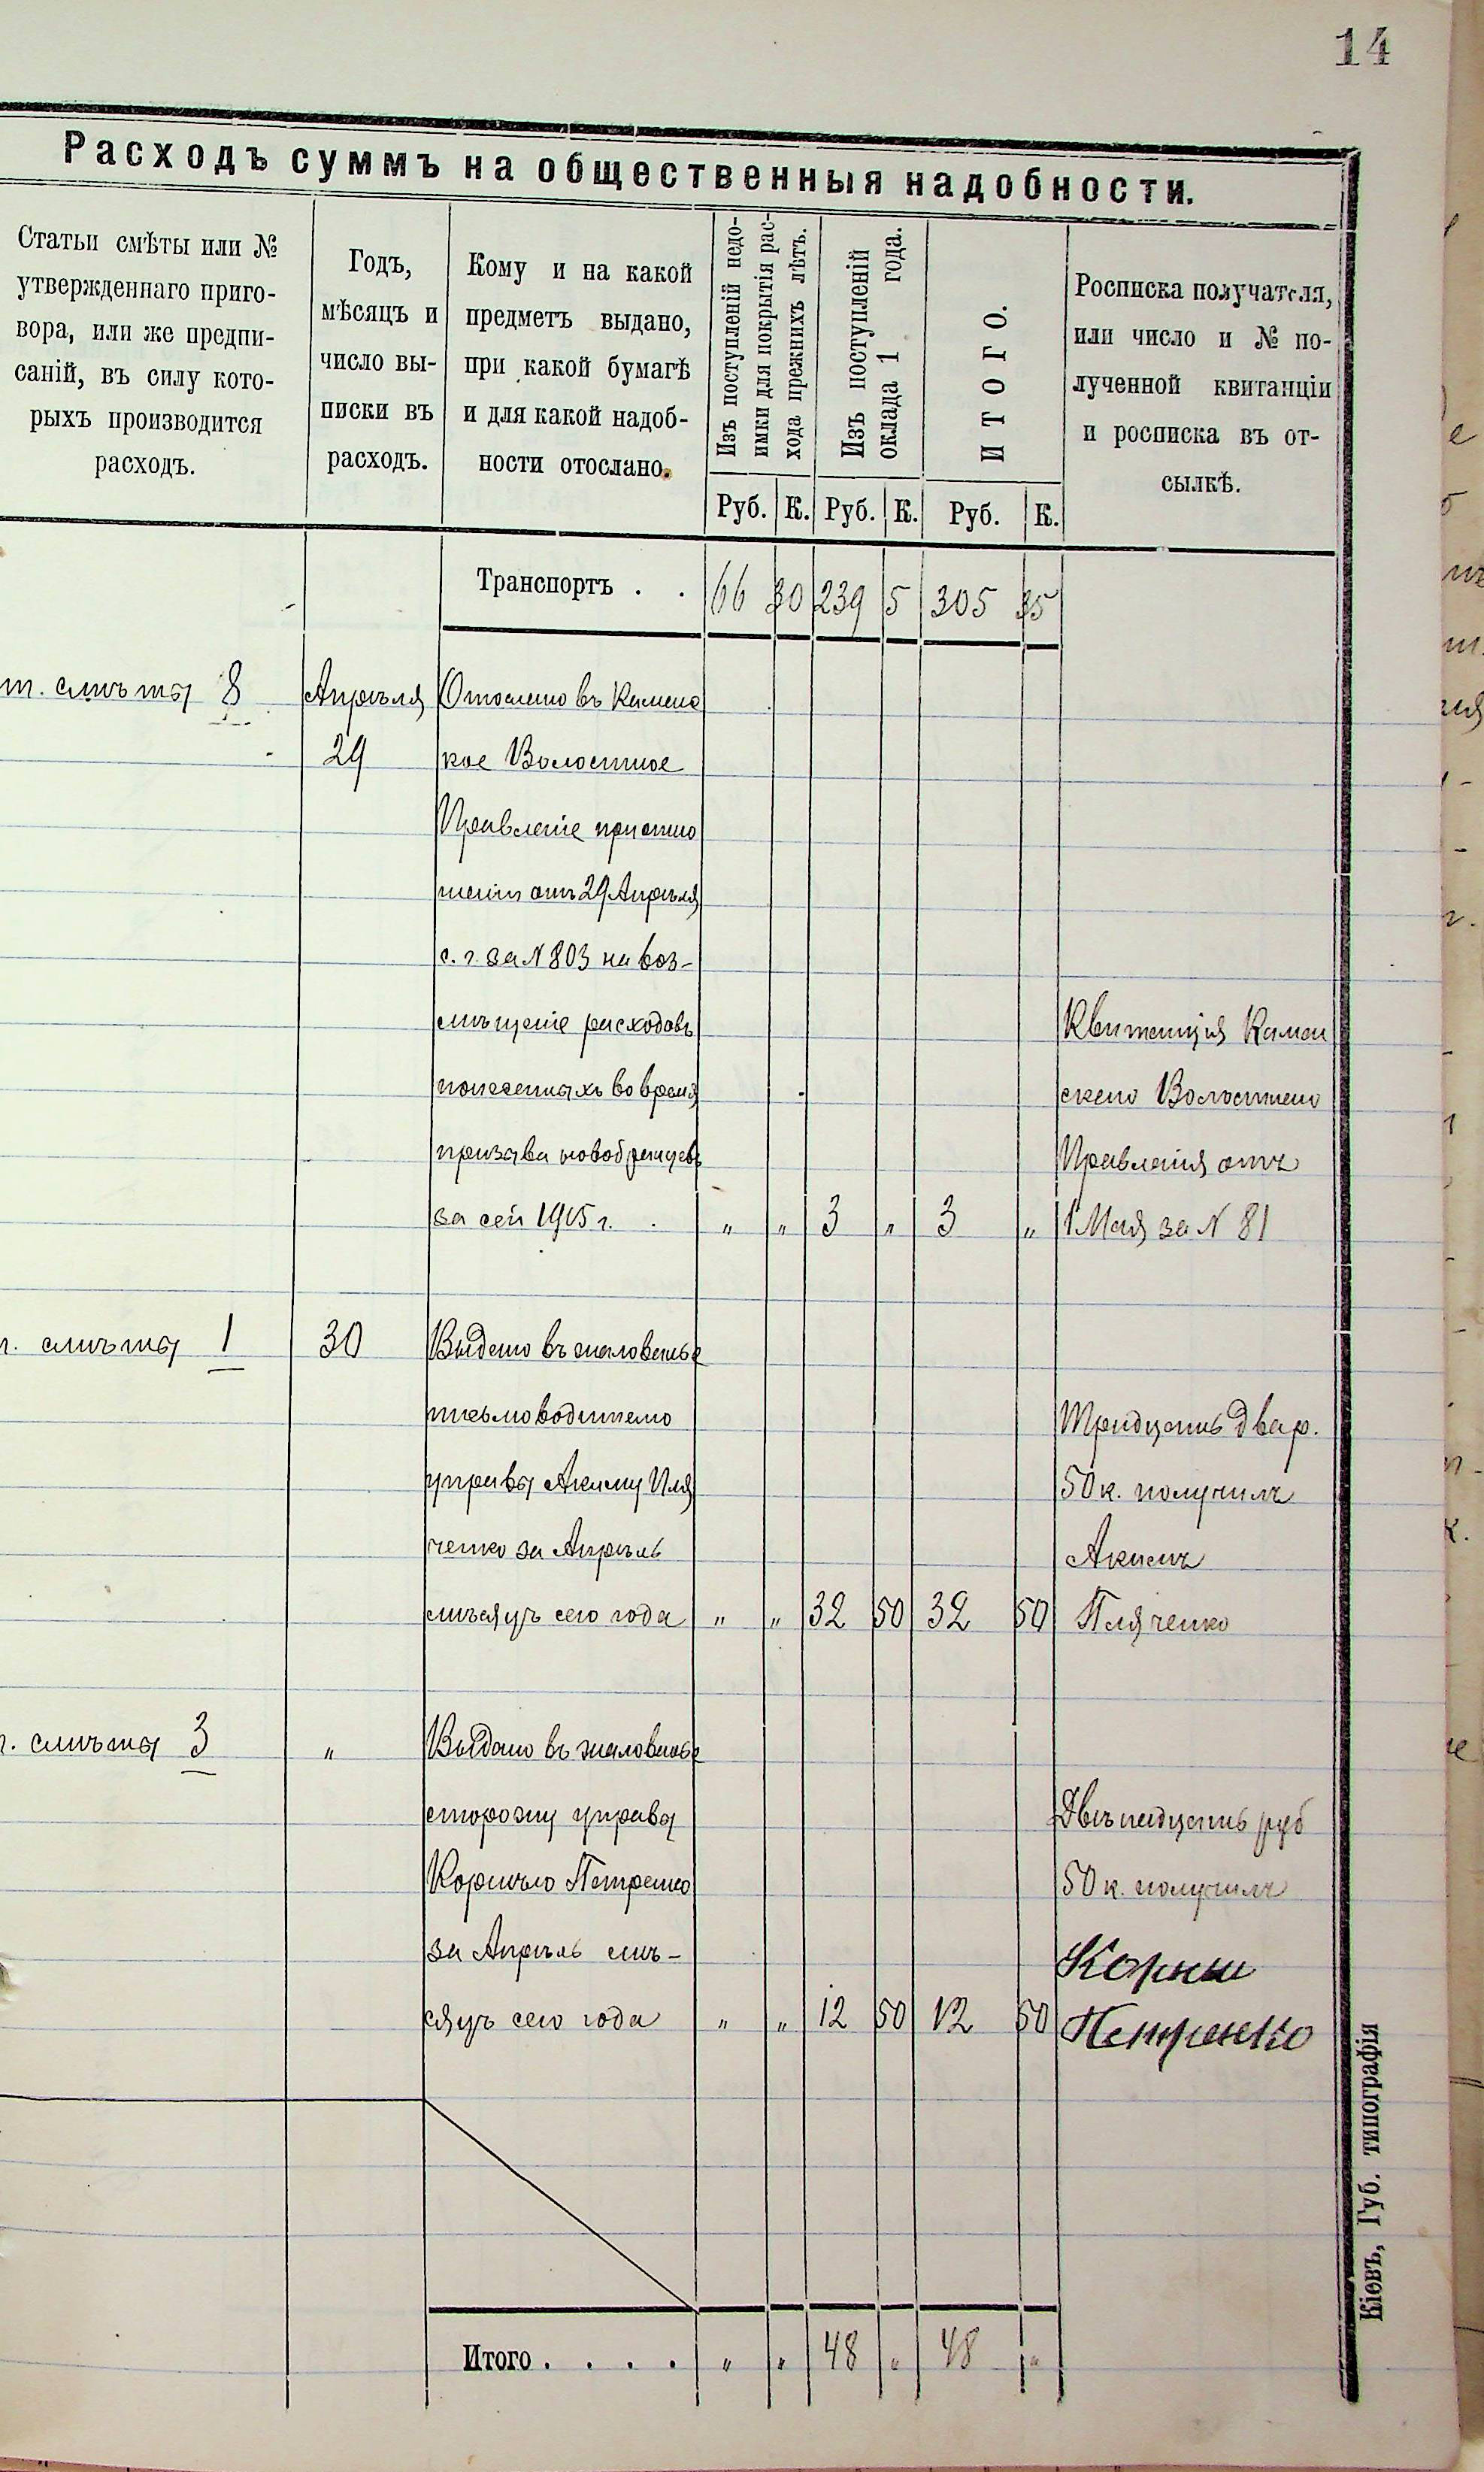 14
Расходъ суммъ на общественныя надобности.
Статьи смѣты или №
утвержденнаго приго-
вора, или же предпи-
саній, въ силу кото-
рыхъ производится
расходъ.
Годъ,
мѣсяцъ и
число вы-
писки въ
расходъ.
Кому и на какой
предметъ выдано,
при какой бумагѣ
и для какой надоб-
ности отослано.
Изъ поступленій недо-
имки для покрытія рас-
хода прежнихъ лѣтъ.
Изъ поступленій
оклада 1 года.
ИТОГО.
Росписка получателя,
или число и № по-
лученной квитанціи
и росписка въ от-
сылкѣ.
Руб. К. Руб. К. Руб. К.
Транспортъ . . 66 30 239 5 305 35
т. смѣты 8 Апрѣля Отослано въ Камен
29 кое Волостное
Правленіе при отно
шеніи отъ 29 Апрѣля
с. г. за N 803 на воз-
мѣщеніе расходовъ Квитанція Камен
понесенныхъ во время скаго Волостного
призыва новобранцевъ Правленія отъ
за сей 1915 г. . " " 3 " 3 " 1 Мая за N 81
т. смѣты 1 30 Выдано въ жалованье
письмоводителю Тридцать два р.
управы Акиму Пля 50 к. получилъ
ченко за Апрѣль Акимъ
мѣсяцъ сего года " " 32 50 32 50 Пляченко
т. смѣты 3 " Выдано въ жалованье
сторожу управы Двѣнадцать руб
Корнѣю Петренко 50 к. получилъ
за Апрѣль мѣ- Корни
сяцъ сего года " " 12 50 12 50 Петренко
Итого . . . . " " 48 " 48 "
Кіевъ, Губ. типографія